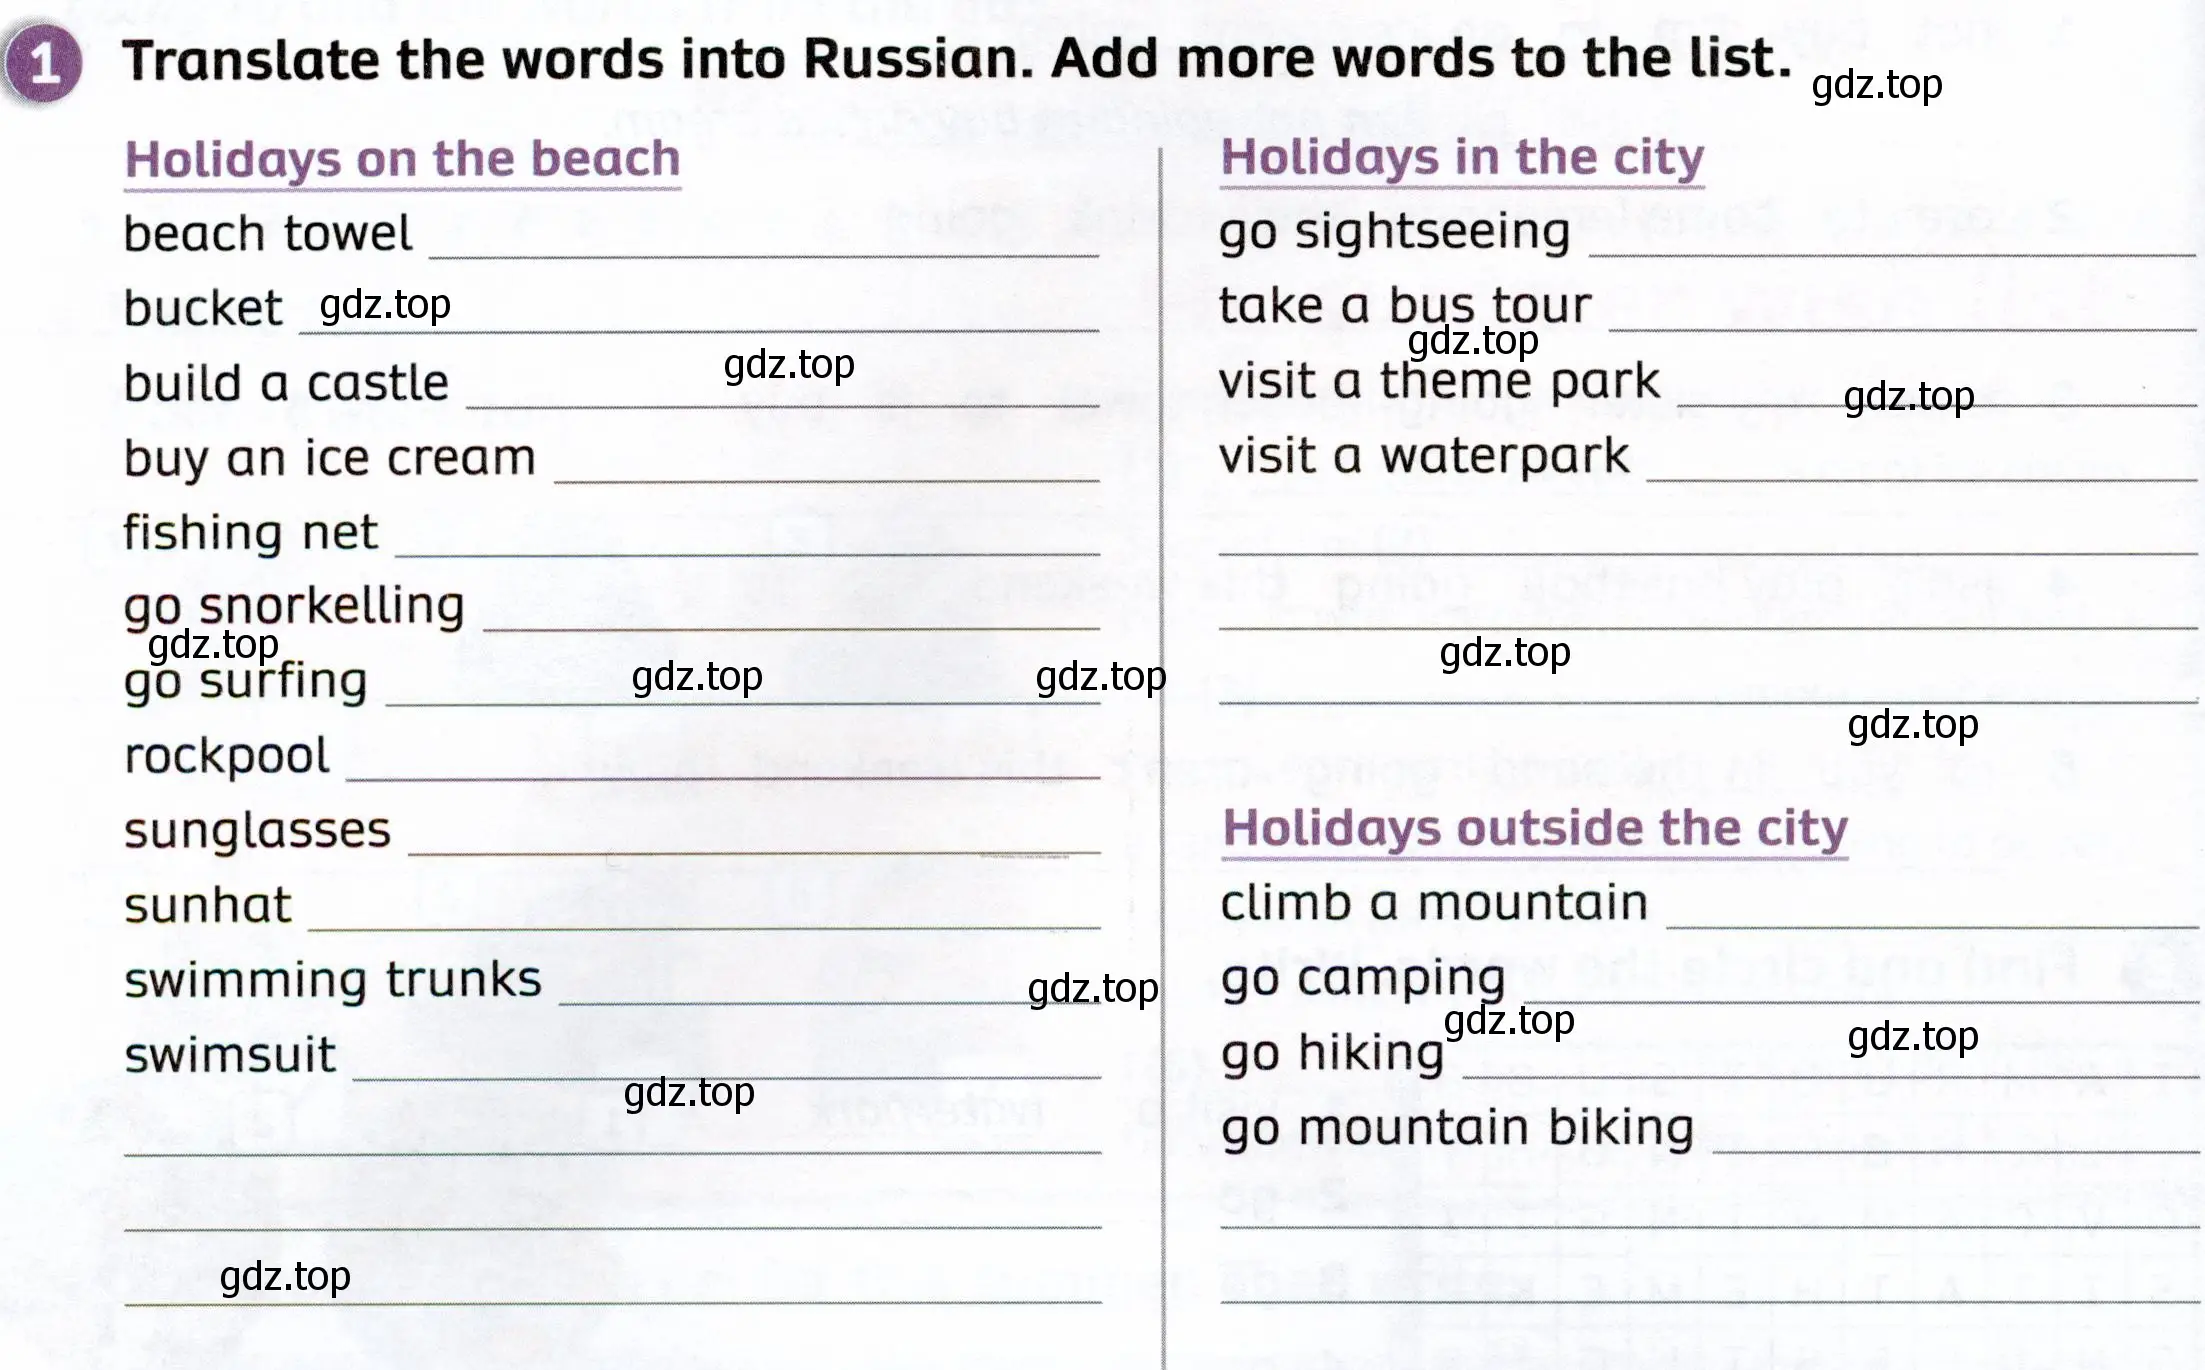 1 Translate the words into Russian. Add more words to the list.
gdz.top
Holidays on the beach
beach towel
bucket gdz.top
build a castle gdz.top
buy an ice cream
fishing net
go snorkelling
gdz.top
go surfing gdz.top gdz.top
rockpool
sunglasses
sunhat
swimming trunks gdz.top
swimsuit
gdz.top
gdz.top
Holidays in the city
go sightseeing
take a bus tour
gdz.top
visit a theme park gdz.top
visit a waterpark
gdz.top
gdz.top
Holidays outside the city
climb a mountain
go camping
gdz.top gdz.top
go hiking
go mountain biking